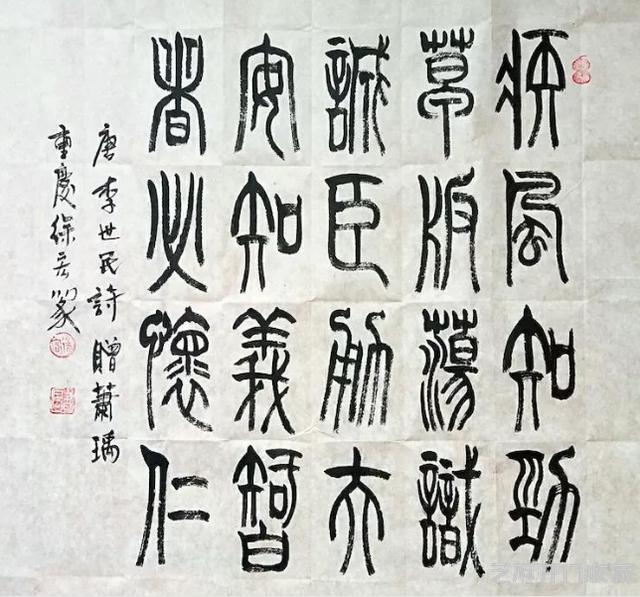 疾風知勁
草版蕩識
誠臣勇夫
安知義智
者必懷仁
唐李世民詩贈蕭瑀
重慶徐篆